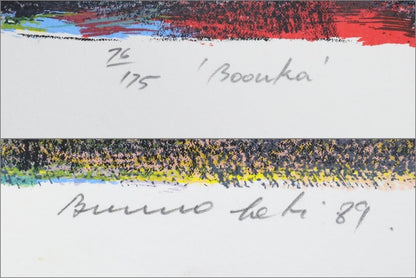 76
175 'Boouka'
Bruno Leti 89.